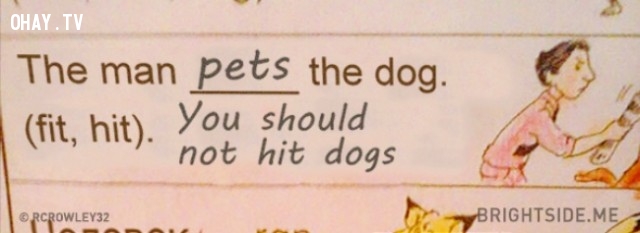 OHAY.TV
The man pets the dog.
(fit, hit). You should
not hit dogs
© RCROWLEY32
BRIGHTSIDE.ME